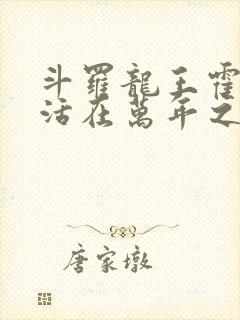 斗羅龍王霍
活在萬年之
唐家墩